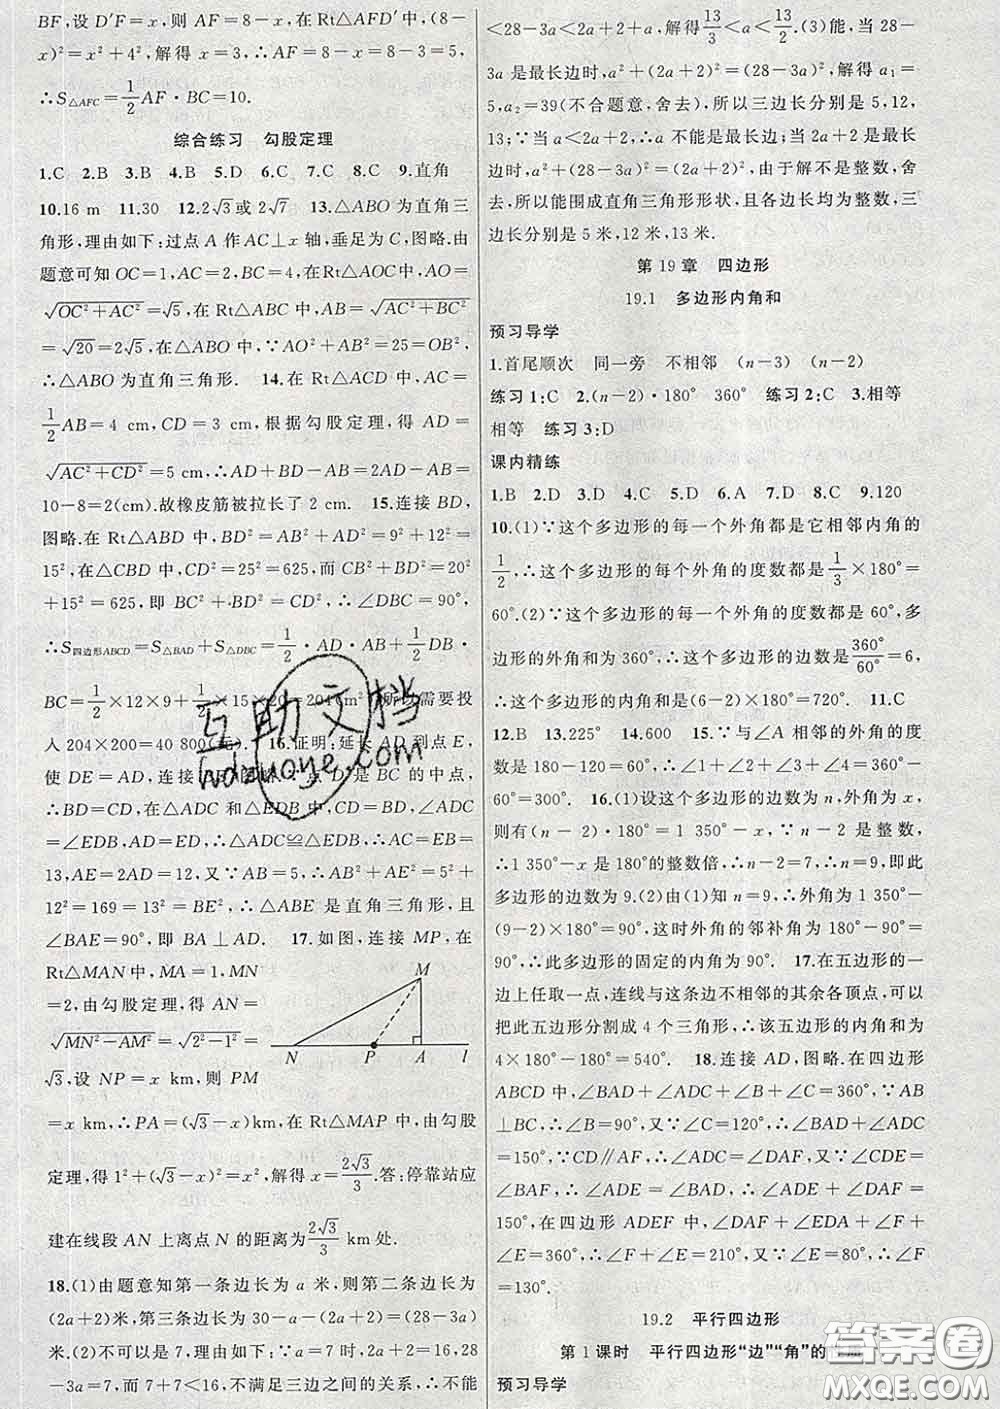 BF,设 D′F=x,则 AF=8-x,在 Rt△AFD′中,(8-
x)²=x²+4²,解得 x=3,∴AF=8-x=8-3=5,
∴S△AFC=1/2 AF·BC=10.
综合练习 勾股定理
1.C 2.B 3.B 4.B 5.D 6.C 7.C 8.C 9.直角
10.16 m 11.30 12.2√3或2√7 13.△ABO为直角三
角形,理由如下:过点 A 作 AC⊥x 轴,垂足为 C,图略.由
题意可知 OC=1,AC=2,BC=4,在 Rt△AOC中,AO=
√(OC²+AC²)=√5,在 Rt△ABC 中,AB=√(AC²+BC²)
=√20=2√5,在△ABO中,∵AO²+AB²=25=OB²,
∴△ABO为直角三角形. 14.在 Rt△ACD 中,AC=
1/2 AB=4 cm,CD=3 cm,根据勾股定理,得 AD=
√(AC²+CD²)=5 cm,∴AD+BD-AB=2AD-AB=
10-8=2(cm).故橡皮筋被拉长了 2 cm. 15.连接 BD,
图略.在 Rt△ABD 中,BD²=AD²+AB²=9²+12²=
15²,在△CBD 中,CD²=25²=625,而 CB²+BD²=20²
+15²=625,即 BC²+BD²=CD²,∴∠DBC=90°,
∴S四边形ABCD=S△BAD+S△DBC=1/2·AD·AB+1/2 DB·
BC=1/2×12×9+1/2×15×20=204(m²).所以需要投
入 204×200=40 800(元). 16.证明:延长 AD 到点 E,
使 DE=AD,连接 BE,图略.∵点 D 是 BC 的中点,
∴BD=CD,在△ADC 和△EDB 中,CD=BD,∠ADC
=∠EDB,AD=ED,∴△ADC≌△EDB,∴AC=EB=
13,AE=2AD=12,又∵AB=5,∴AB²+AE²=5²+
12²=169=13²=BE²,∴△ABE 是直角三角形,且
∠BAE=90°,即 BA⊥AD. 17.如图,连接 MP,在
Rt△MAN 中,MA=1,MN
=2,由勾股定理,得 AN=
√(MN²-AM²)=√(2²-1²)=
√3,设 NP=x km,则 PM
=x km,∴PA=(√3-x)km.在 Rt△MAP 中,由勾股
定理,得 1²+(√3-x)²=x²,解得 x=2√3/3.答:停靠站应
建在线段 AN 上离点 N 的距离为2√3/3 km处.
18.(1)由题意知第一条边长为 a 米,则第二条边长为
(2a+2)米,第三条边长为 30-a-(2a+2)=(28-3a)
米.(2)不可以是 7,理由如下:∵a=7,∴2a+2=16,28
-3a=7,而 7+7<16,不满足三边之间的关系,∴不能
M
N P A l
<28-3a<2a+2+a,解得13/3<a<13/2.(3)能,当 28-
3a 是最长边时,a²+(2a+2)²=(28-3a)²,解得 a₁=
5,a₂=39(不合题意,舍去),所以三边长分别是 5,12,
13;∵当 a<2a+2,∴a 不能是最长边;当 2a+2 是最长
边时,a²+(28-3a)²=(2a+2)²,由于解不是整数,舍
去,所以能围成直角三角形形状,且各边长均为整数,三
边长分别是 5 米,12 米,13 米.
第 19 章 四边形
19.1 多边形内角和
预习导学
1.首尾顺次 同一旁 不相邻 (n-3) (n-2)
练习 1:C 2.(n-2)·180° 360° 练习 2:C 3.相等
相等 练习 3:D
课内精练
1.B 2.D 3.D 4.C 5.D 6.A 7.D 8.C 9.120
10.(1)∵这个多边形的每一个外角都是它相邻内角的
1/2,∴这个多边形的每个外角的度数都是1/3×180°=
60°.(2)∵这个多边形的每一个外角的度数都是 60°,多
边形的外角和为 360°,∴这个多边形的边数是360°/60°=6,
∴这个多边形的内角和是(6-2)×180°=720°. 11.C
12.B 13.225° 14.600 15.∵与∠A 相邻的外角的度
数是 180-120=60°,∴∠1+∠2+∠3+∠4=360°-
60°=300°. 16.(1)设这个多边形的边数为 n,外角为 x,
则有(n-2)×180°=1 350°-x,∵n-2 是整数,
∴1 350°-x 是 180°的整数倍,∴n-2=7,∴n=9,即此
多边形的边数为 9.(2)由(1)知 n=9,∴外角为 1 350°-
(9-2)×180°=90°,这时外角的邻补角为 180°-90°=
90°,∴此多边形的固定的内角为 90°. 17.在五边形的一
边上任取一点,连线与这条边不相邻的其余各顶点,可以
把此五边形分割成 4 个三角形,∴该五边形的内角和为
4×180°-180°=540°. 18.连接 AD,图略.在四边形
ABCD 中,∠BAD+∠ADC+∠B+∠C=360°,∵AB
⊥BC,∴∠B=90°,又∵∠C=120°,∴∠BAD+∠ADC
=150°,∵CD∥AF,∴∠ADC=∠DAF,又∵∠CDE
=∠BAF,∴∠ADE=∠BAD,∴∠ADE+∠DAF=
150°,在四边形 ADEF 中,∠DAF+∠EDA+∠F+
∠E=360°,∴∠F+∠E=210°,又∵∠E=80°,∴∠F
=130°.
19.2 平行四边形
第 1 课时 平行四边形“边”“角”的
预习导学
互助文档
hdzuoye.com
答案圈
MXQE.COM